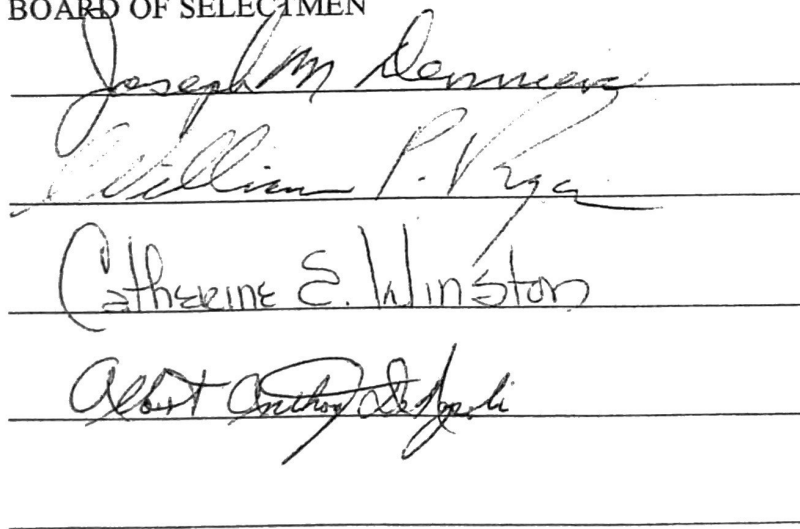 BOARD OF SELECTMEN
Joseph M
William P. Ryan
Catherine E. Winston
Albert Anthony DeNapoli